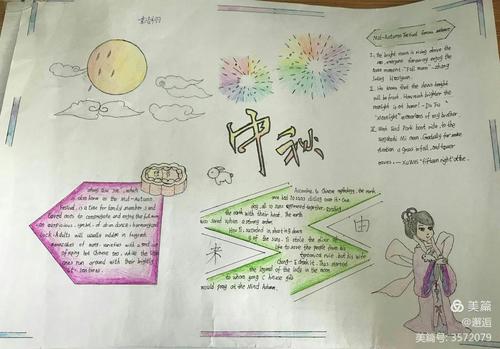 中秋
Mid-Autumn Festival famous sentence
1. The bright moon is rising above the
sea, everyone faraway enjoy the
same moment. "Full moon" - zhang
Jiuling
II. We know that the dew tonight
will be frost. How much brighter the
moonlight is at home! - Du Fu "
moonlight" memories of my brother.
"fifteen night" of the
zhong Qiu Jie, which
is also know as the Mid-Autumn
Festival, is a time for family members and
loved ones to congregate and enjoy the full moon
- an auspicious symbol of abundance, harmony and
luck. Adults will usually indulge in fragrant
mooncakes of many varieties with a
cup of piping hot Chinese tea, while the little
ones run around with their brightly
lit lanterns.
来
由
According to Chinese mythology, the earth
once had 10 suns circling over it. One
day, all 10 suns appeared together, scorching
the earth with their heat. The earth
was saved when a strong archer,
Hou Yi, succeeded in shooting down
9 of the suns. Yi stole the elixir of
life to save the people from his
tyrannical rule, but his wife
Chang-E drank it. Thus started
the legend of the lady in the moon
to whom young Chinese girls
would pray at the Mid Autumn.
美篇
@邂逅
美篇号: 3572079